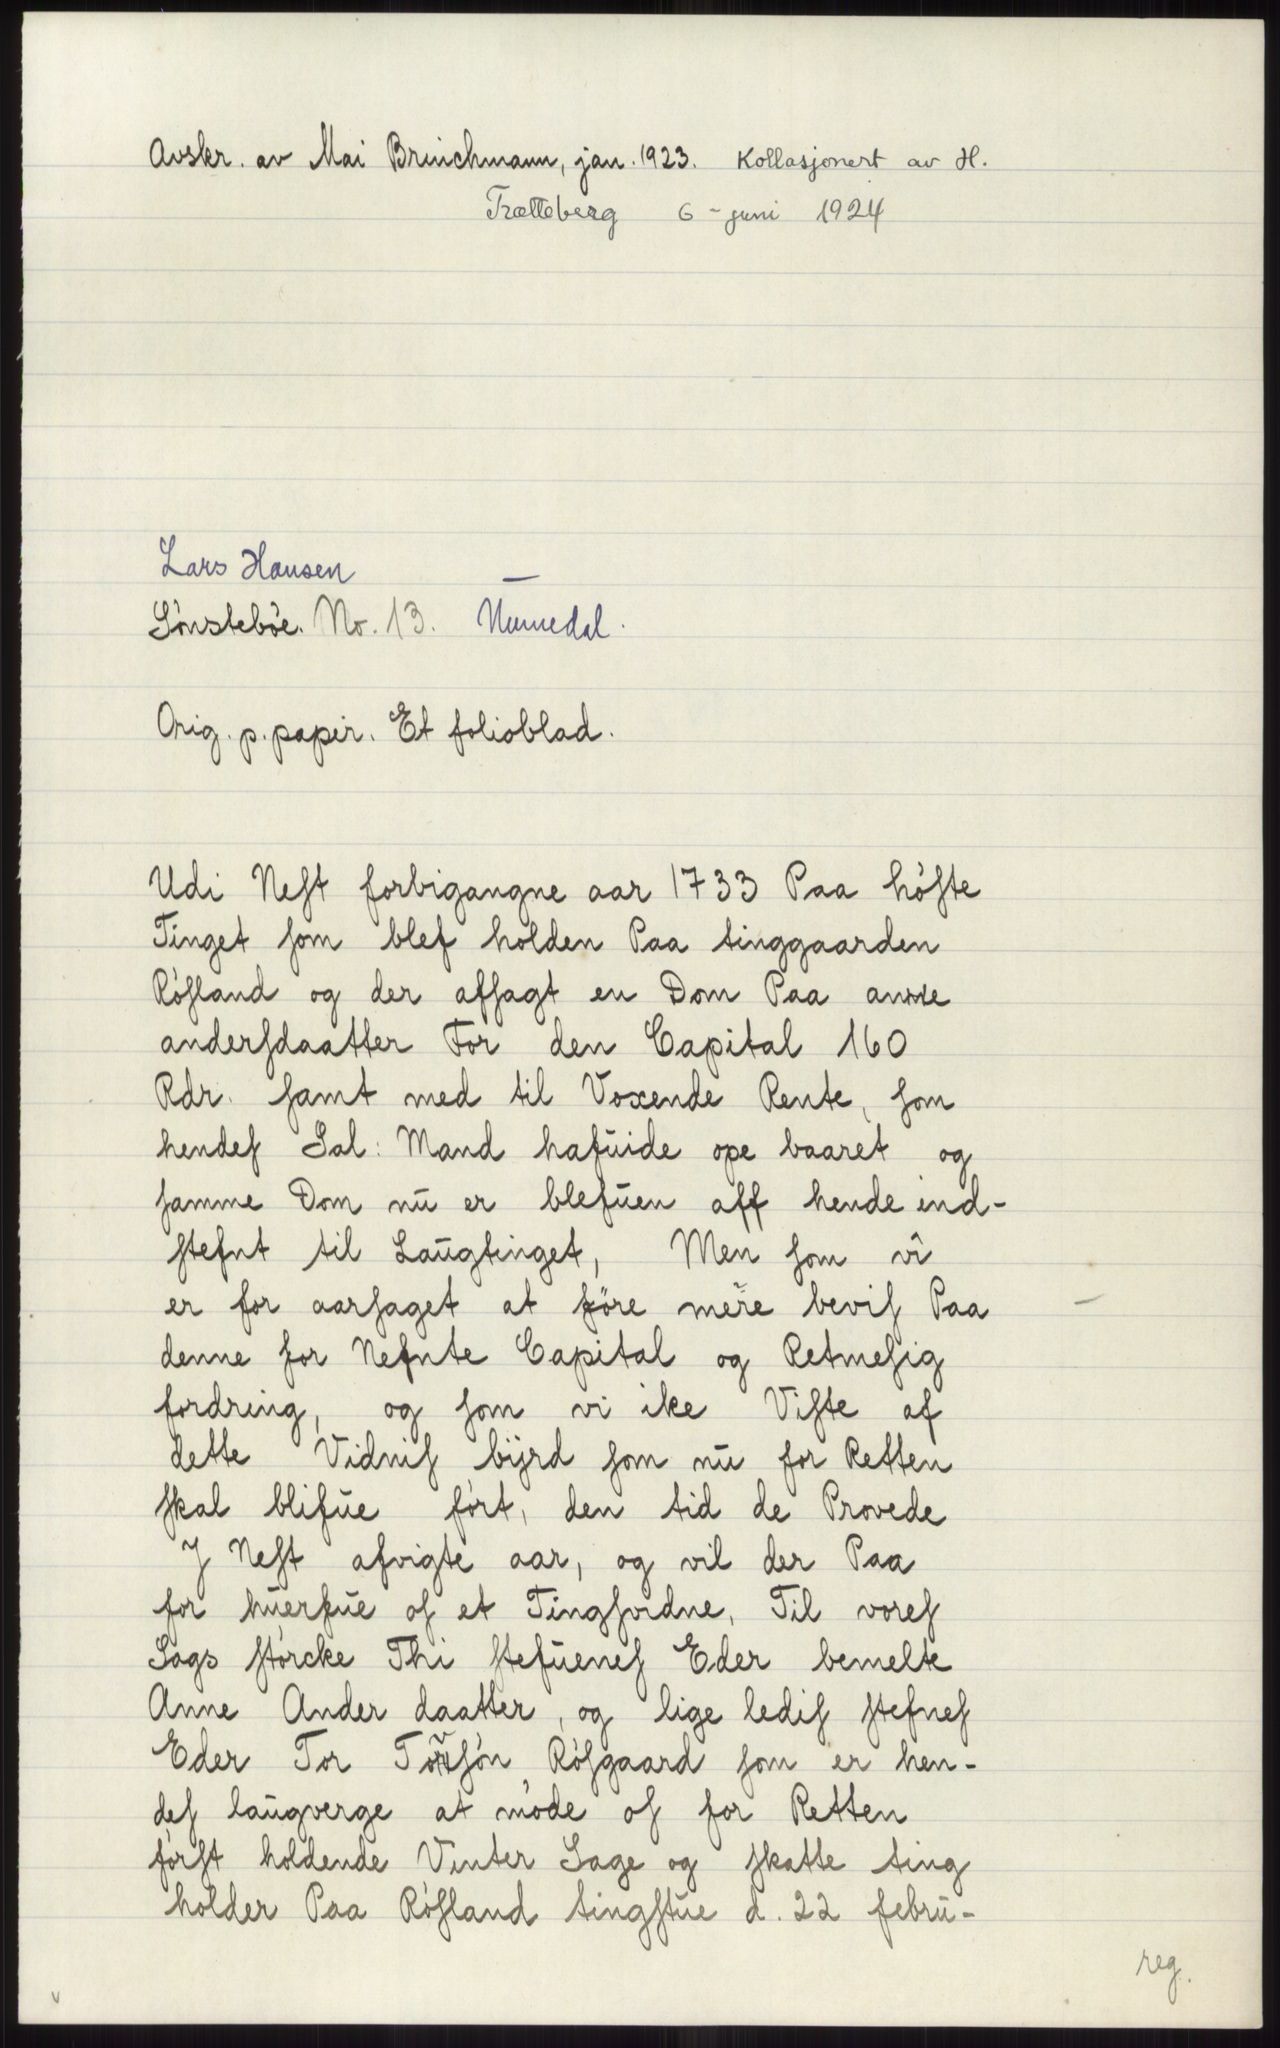 Avskr. av Mai Brinchmann, jan. 1923. Kollasjonert av H.
Trætteberg 6-juni 1924
Lars Hansen
Sönsteböe. No. 13. Numedal.
Orig. p. papir. Et folioblad.
Udi Neſt forbigangne aar 1733 Paa höſte
Tinget ſom blef holden Paa tinggaarden
Röſland og der afſagt en Dom Paa anne
anderſdaatter For den Capital 160
Rdr. ſamt med til Voxende Rente, ſom
hendeſ Sal: Mand hafuide ope baaret og
ſamme Dom nu er blefuen aff hende ind-
ſtefnt til Laugtinget, Men ſom vi
er for aarſaget at före mere beviſ Paa
denne for Nefnte Capital og Retmeſig
fordring, og ſom vi ike Viſte af
dette Vidniſ bijrd ſom nu for Retten
ſkal blifue fört, den tid de Provede
J Neſt afvigte aar, og vil der Paa
for huerfue oſ et Tingſvidne, Til voreſ
Sags störcke Thi ſtefueneſ Eder bemelte
Anne Ander daatter, og lige lediſ ſtefneſ
Eder Tor Torſön Röſgaard ſom er hen-
deſ laugverge at möde oſ for Retten
förſt holdende Vinter Sage og ſkatte ting
holder Paa Röſland tingſtue d. 22 febru-
reg.